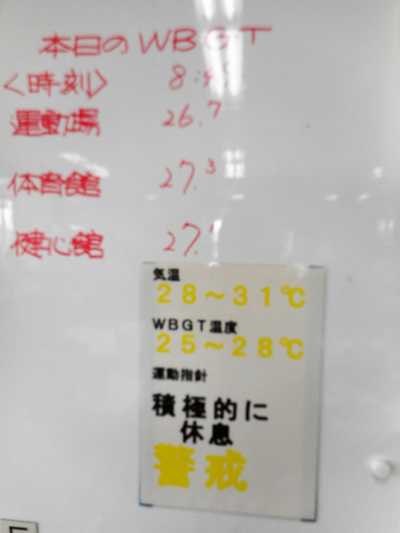 本日のWBGT
〈時刻〉
運動場 26.7
体育館 27.3
健心館
気温
28〜31℃
WBGT温度
25〜28℃
運動指針
積極的に
休息
警戒